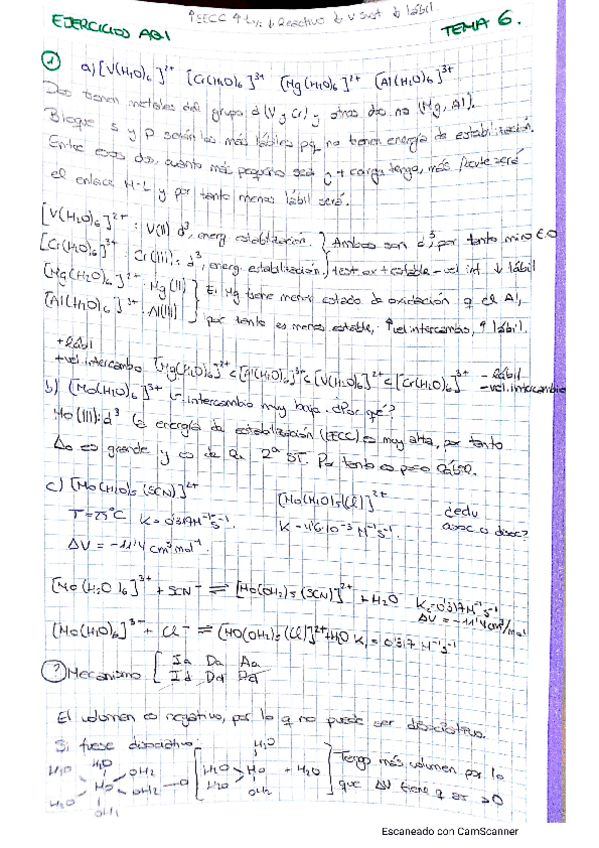 ↑EECC ↑ ↓ Reactivo ↓ v sust ↓ lábil
EJERCICIOS TEMA 6.
① a) [V(H₂O)₆]²⁺ [Cr(H₂O)₆]³⁺ [Mg(H₂O)₆]²⁺ [Al(H₂O)₆]³⁺
Dos tienen metales del grupo d (V y Cr) y otros dos no (Mg, Al).
Bloque s y p serán los más lábiles pq no tienen energía de estabilización.
Entre esos dos, cuánto más pequeño sea y + carga tenga, más fuerte será
el enlace M-L y por tanto menos lábil será.
[V(H₂O)₆]²⁺ : V(II) d³, energ estabilización. } Ambos son d³, por tanto miro E.O
[Cr(H₂O)₆]³⁺ Cr(III): d³, energ estabilización } + est ox + estable - vel int ↓ lábil
[Mg(H₂O)₆]²⁺ Mg(II) } El Mg tiene menor estado de oxidación q el Al,
[Al(H₂O)₆]³⁺ : Al(III) } por tanto es menos estable, ↑ vel intercambio, ↑ lábil.
+ lábil
+ vel. intercambio [Mg(H₂O)₆]²⁺ < [Al(H₂O)₆]³⁺ < [V(H₂O)₆]²⁺ < [Cr(H₂O)₆]³⁺ - lábil
- vel. intercambio
b) [Mo(H₂O)₆]³⁺ intercambio muy bajo. ¿Por qué?
Mo(III): d³ la energía de estabilización (EECC) es muy alta, por tanto
Δo es grande y es de la 2ª ST. Por tanto es poco lábil.
c) [Mo(H₂O)₅(SCN)]²⁺ [Mo(H₂O)₅(Cl)]²⁺ dedu
T = 25°C K = 0'317 M⁻¹s⁻¹ K = 4'6·10⁻³ M⁻¹s⁻¹ asoc o disoc?
ΔV = -11'4 cm³mol⁻¹.
[Mo(H₂O)₆]³⁺ + SCN⁻ ⇌ [Mo(OH₂)₅(SCN)]²⁺ + H₂O K₁ = 0'317 M⁻¹s⁻¹
ΔV = -11'4 cm³/mol
[Mo(H₂O)₆]³⁻ + Cl⁻ ⇌ [MO(OH₂)₅(Cl)]²⁺ + H₂O K₁ = 0'317 M⁻¹s⁻¹
? Mecanismo [ Ia Da Aa
Id Dd
El volumen es negativo, por lo q no puede ser disociativo.
Si fuese disociativo: H₂O
H₂O H₂O OH₂ H₂O Mo + H₂O Tengo más volumen por lo
Mo OH₂ H₂O que ΔV tiene q ser >0
H₂O OH₂ OH₂
Escaneado con CamScanner